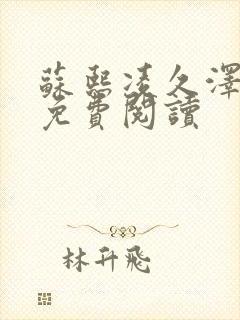 蘇熙凌久澤
免費閱讀
林升飛